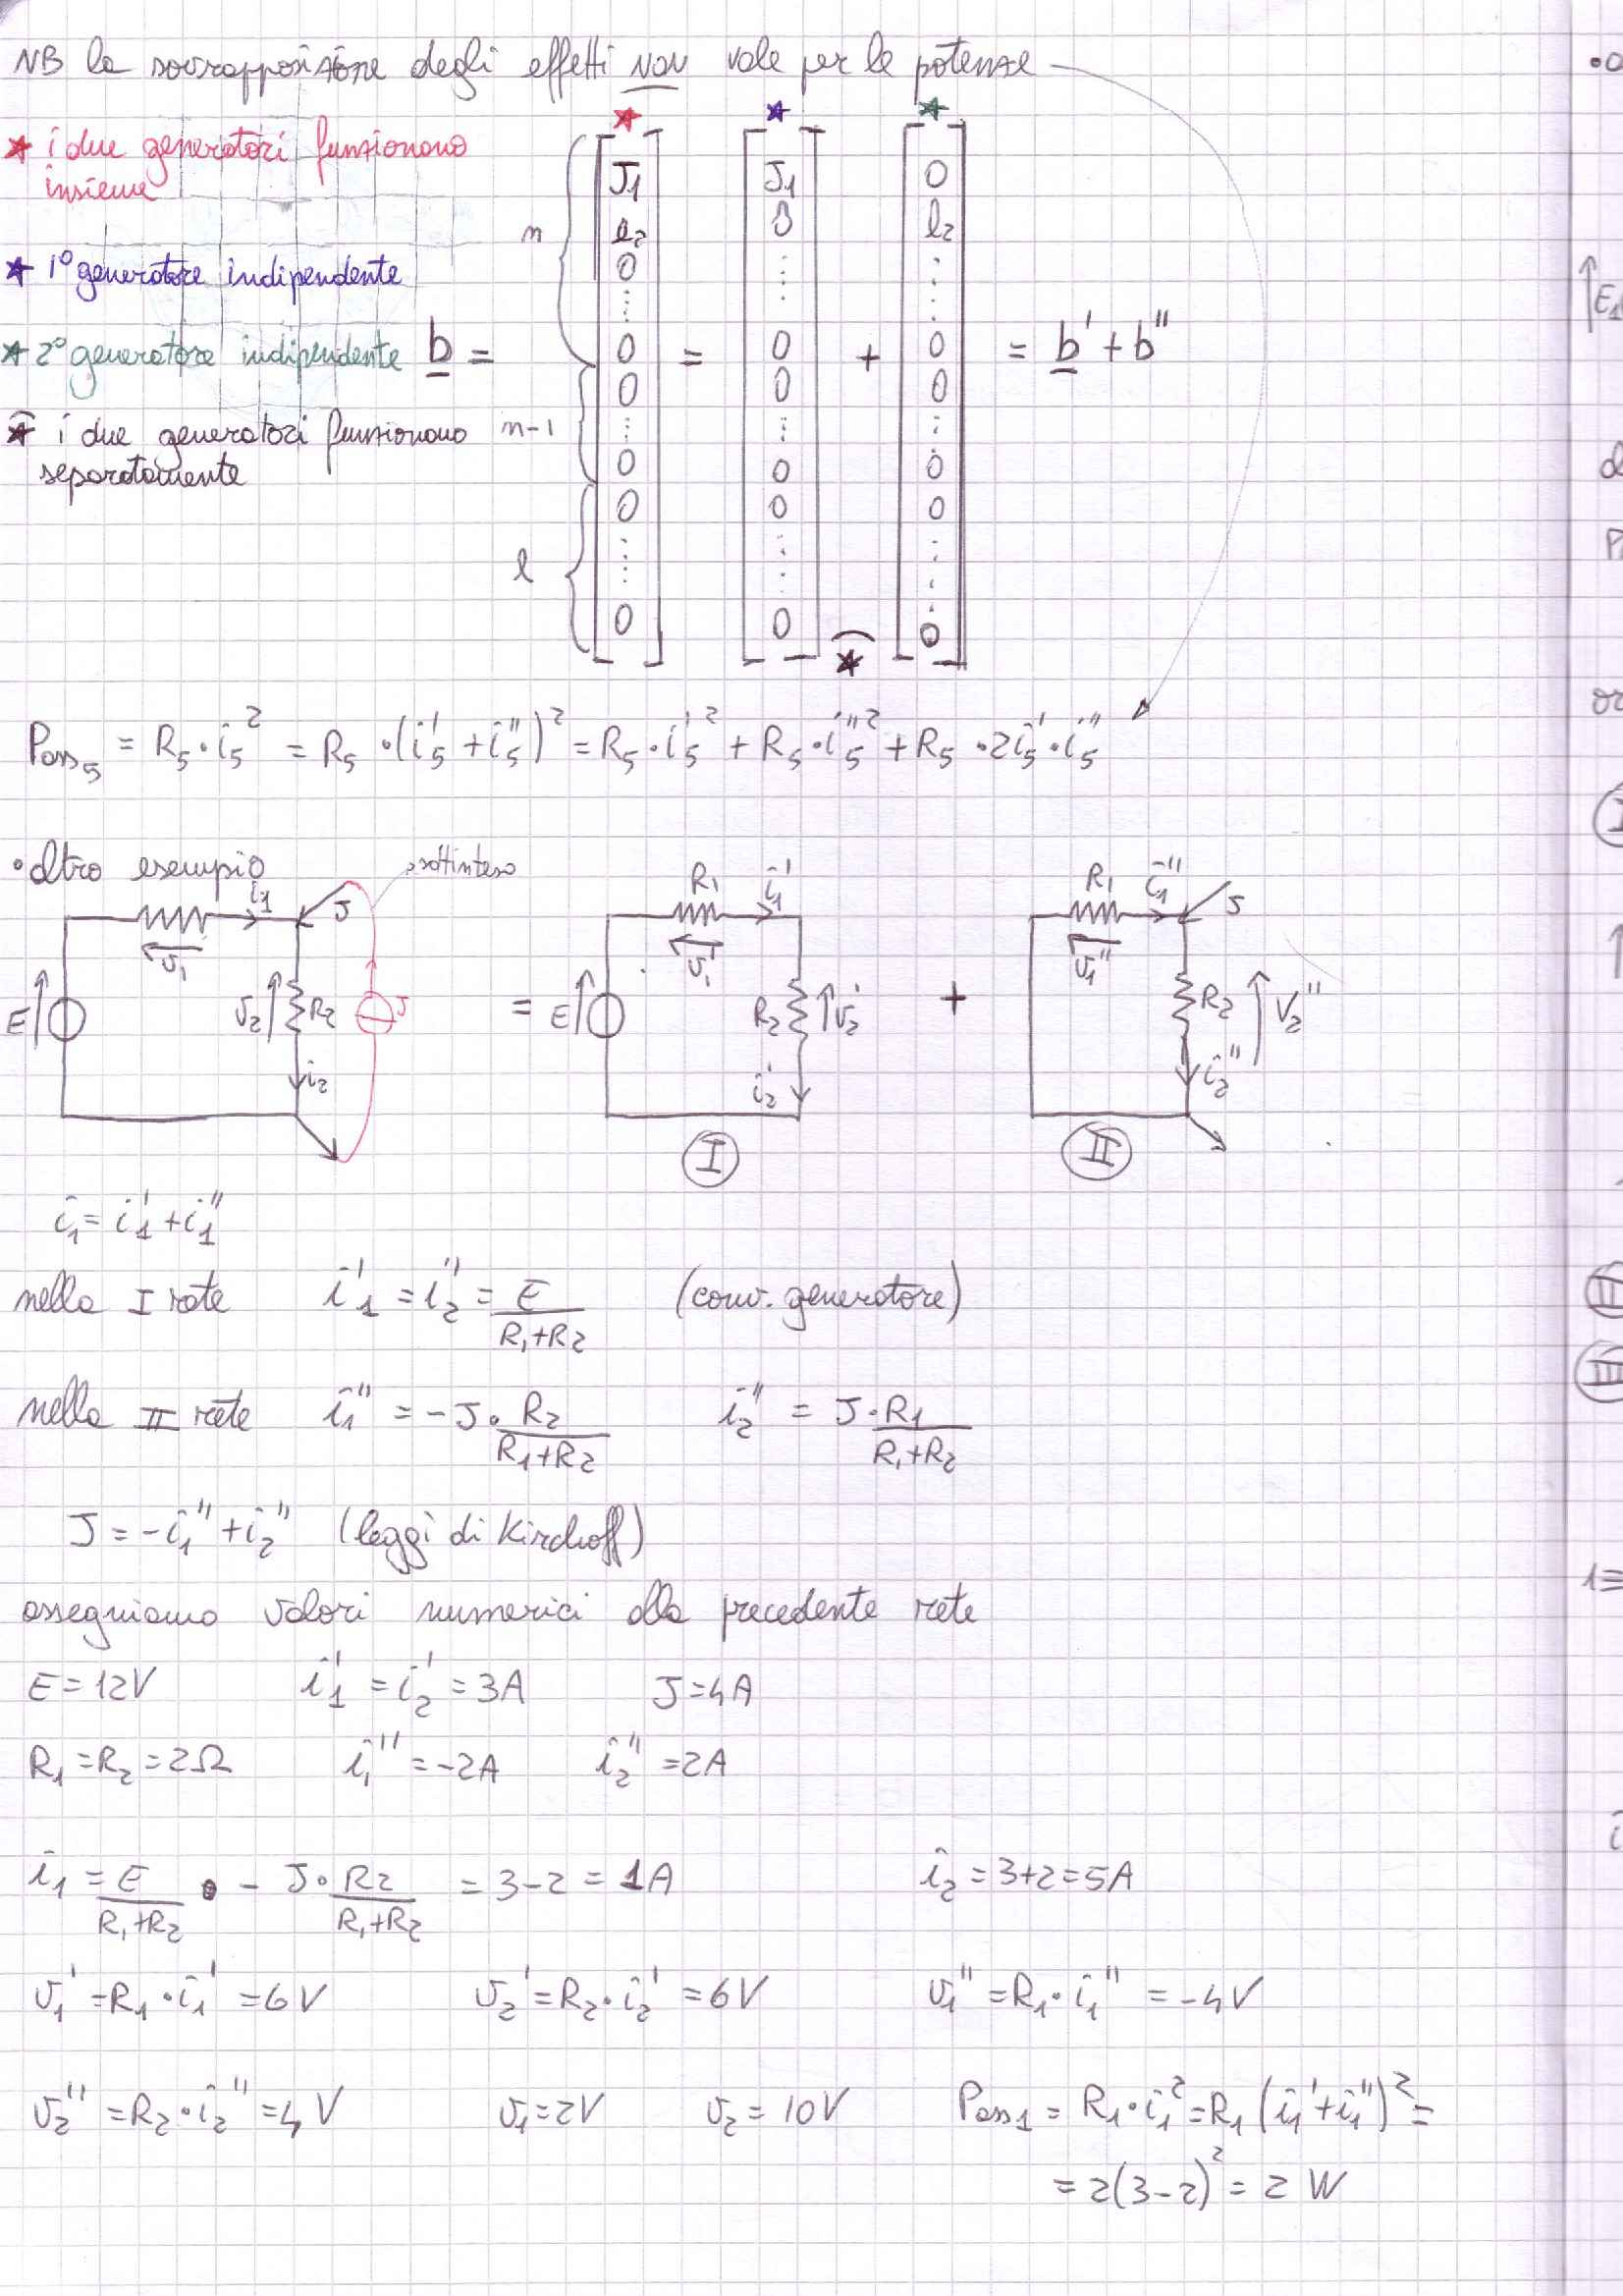 NB la sovrapposizione degli effetti NON vale per le potenze
★ i due generatori funzionano
insieme
★ 1° generatore indipendente
★ 2° generatore indipendente
★ i due generatori funzionano
separatamente
b = [J1 e2 0 ⋮ 0 0 ⋮ 0 0 ⋮ 0] = [J1 0 ⋮ 0 0 ⋮ 0 0 ⋮ 0] + [0 e2 ⋮ 0 0 ⋮ 0 0 ⋮ 0] = b' + b''
n
n-1
l
Pass5 = R5·i5² = R5·(i5' + i5'')² = R5·i5'² + R5·i5''² + R5·2i5'·i5''
•altro esempio
sottinteso
i1 J v1 E v2 R2 J i2
= R1 i1' v1' E R2 v2' i2' I
+ R1 i1'' J v1'' R2 v2'' i2'' II
i1 = i1' + i1''
nella I rete i1' = i2'' = E/(R1+R2) (conv. generatore)
nella II rete i1'' = -J·R2/(R1+R2) i2'' = J·R1/(R1+R2)
J = -i1'' + i2'' (leggi di Kirchoff)
assegniamo valori numerici alla precedente rete
E = 12V i1' = i2' = 3A J = 4A
R1 = R2 = 2Ω i1'' = -2A i2'' = 2A
i1 = E/(R1+R2) - J·R2/(R1+R2) = 3-2 = 1A i2 = 3+2 = 5A
v1' = R1·i1' = 6V v2' = R2·i2' = 6V v1'' = R1·i1'' = -4V
v2'' = R2·i2'' = 4V v1 = 2V v2 = 10V Pass1 = R1·i1² = R1(i1' + i1'')² =
= 2(3-2)² = 2 W
E1